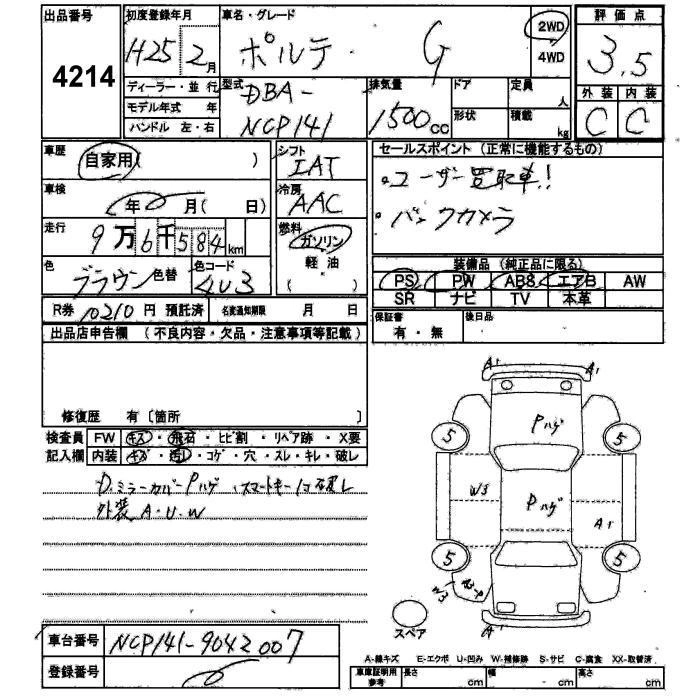 出品番号 初度登録年月 車名・グレード 2WD 評価点
4214 H25 2月 ポルテ G 4WD 3.5
ディーラー・並行 型式 排気量 ドア 定員 人 外装 内装
モデル年式 年 DBA- 1500cc 形状 積載 kg C C
ハンドル 左・右 NCP141
車歴 自家用( ) シフト IAT セールスポイント (正常に機能するもの)
車検 年 月( 日) 冷房 AAC ・ユーザー買取車!!
走行 9万6千584km 燃料 ガソリン ・バックカメラ
色 ブラウン 色替 色コード 4U3 軽油 ( )
装備品 (純正品に限る)
PS PW ABS エアB AW
SR ナビ TV 本革
R券 10210円 預託済 名変通知期限 月 日 保証書 有・無 後日品
出品店申告欄 (不良内容・欠品・注意事項等記載)
修復歴 有〔箇所
検査員 FW キズ・飛石・ヒビ割・リペア跡・X要
記入欄 内装 キズ・汚レ・コゲ・穴・スレ・キレ・破レ
D.ミラーカバーPハゲ スマートキー1コ破レ
外装 A・U・W
A1 A1
Pハゲ
5 5
W3 Pハゲ A1
5 5
W3
A1
スペア
車台番号 NCP141-9042007
登録番号
A-線キズ E-エクボ U-凹み W-補修跡 S-サビ C-腐食 XX-取替済
車庫証明用参考 長さ cm 幅 cm 高さ cm